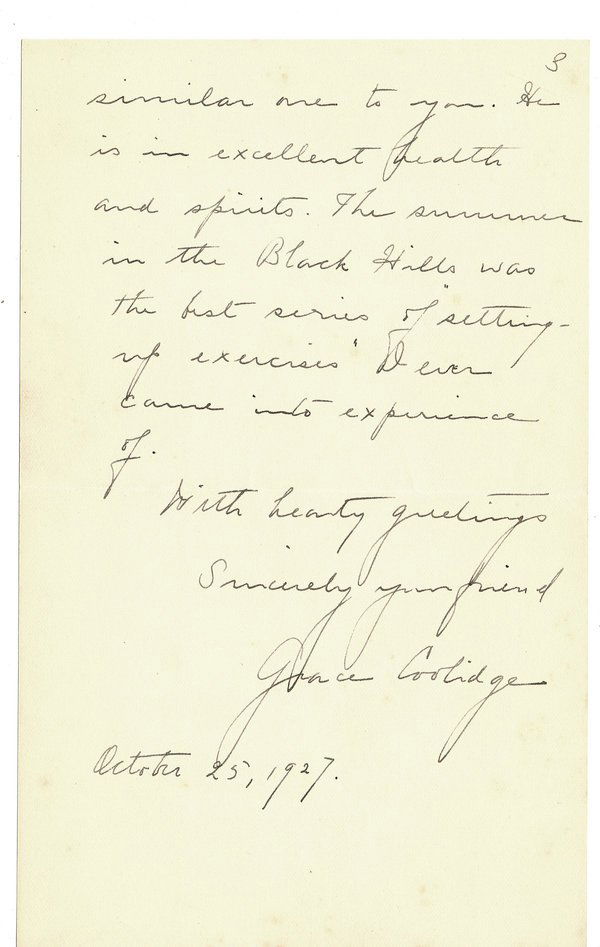 3
similar one to you. He
is in excellent health
and spirits. The summer
in the Black Hills was
the best series of "setting-
up exercises" I ever
came into experience
of.
With hearty greetings
Sincerely your friend
Grace Coolidge
October 25, 1927.